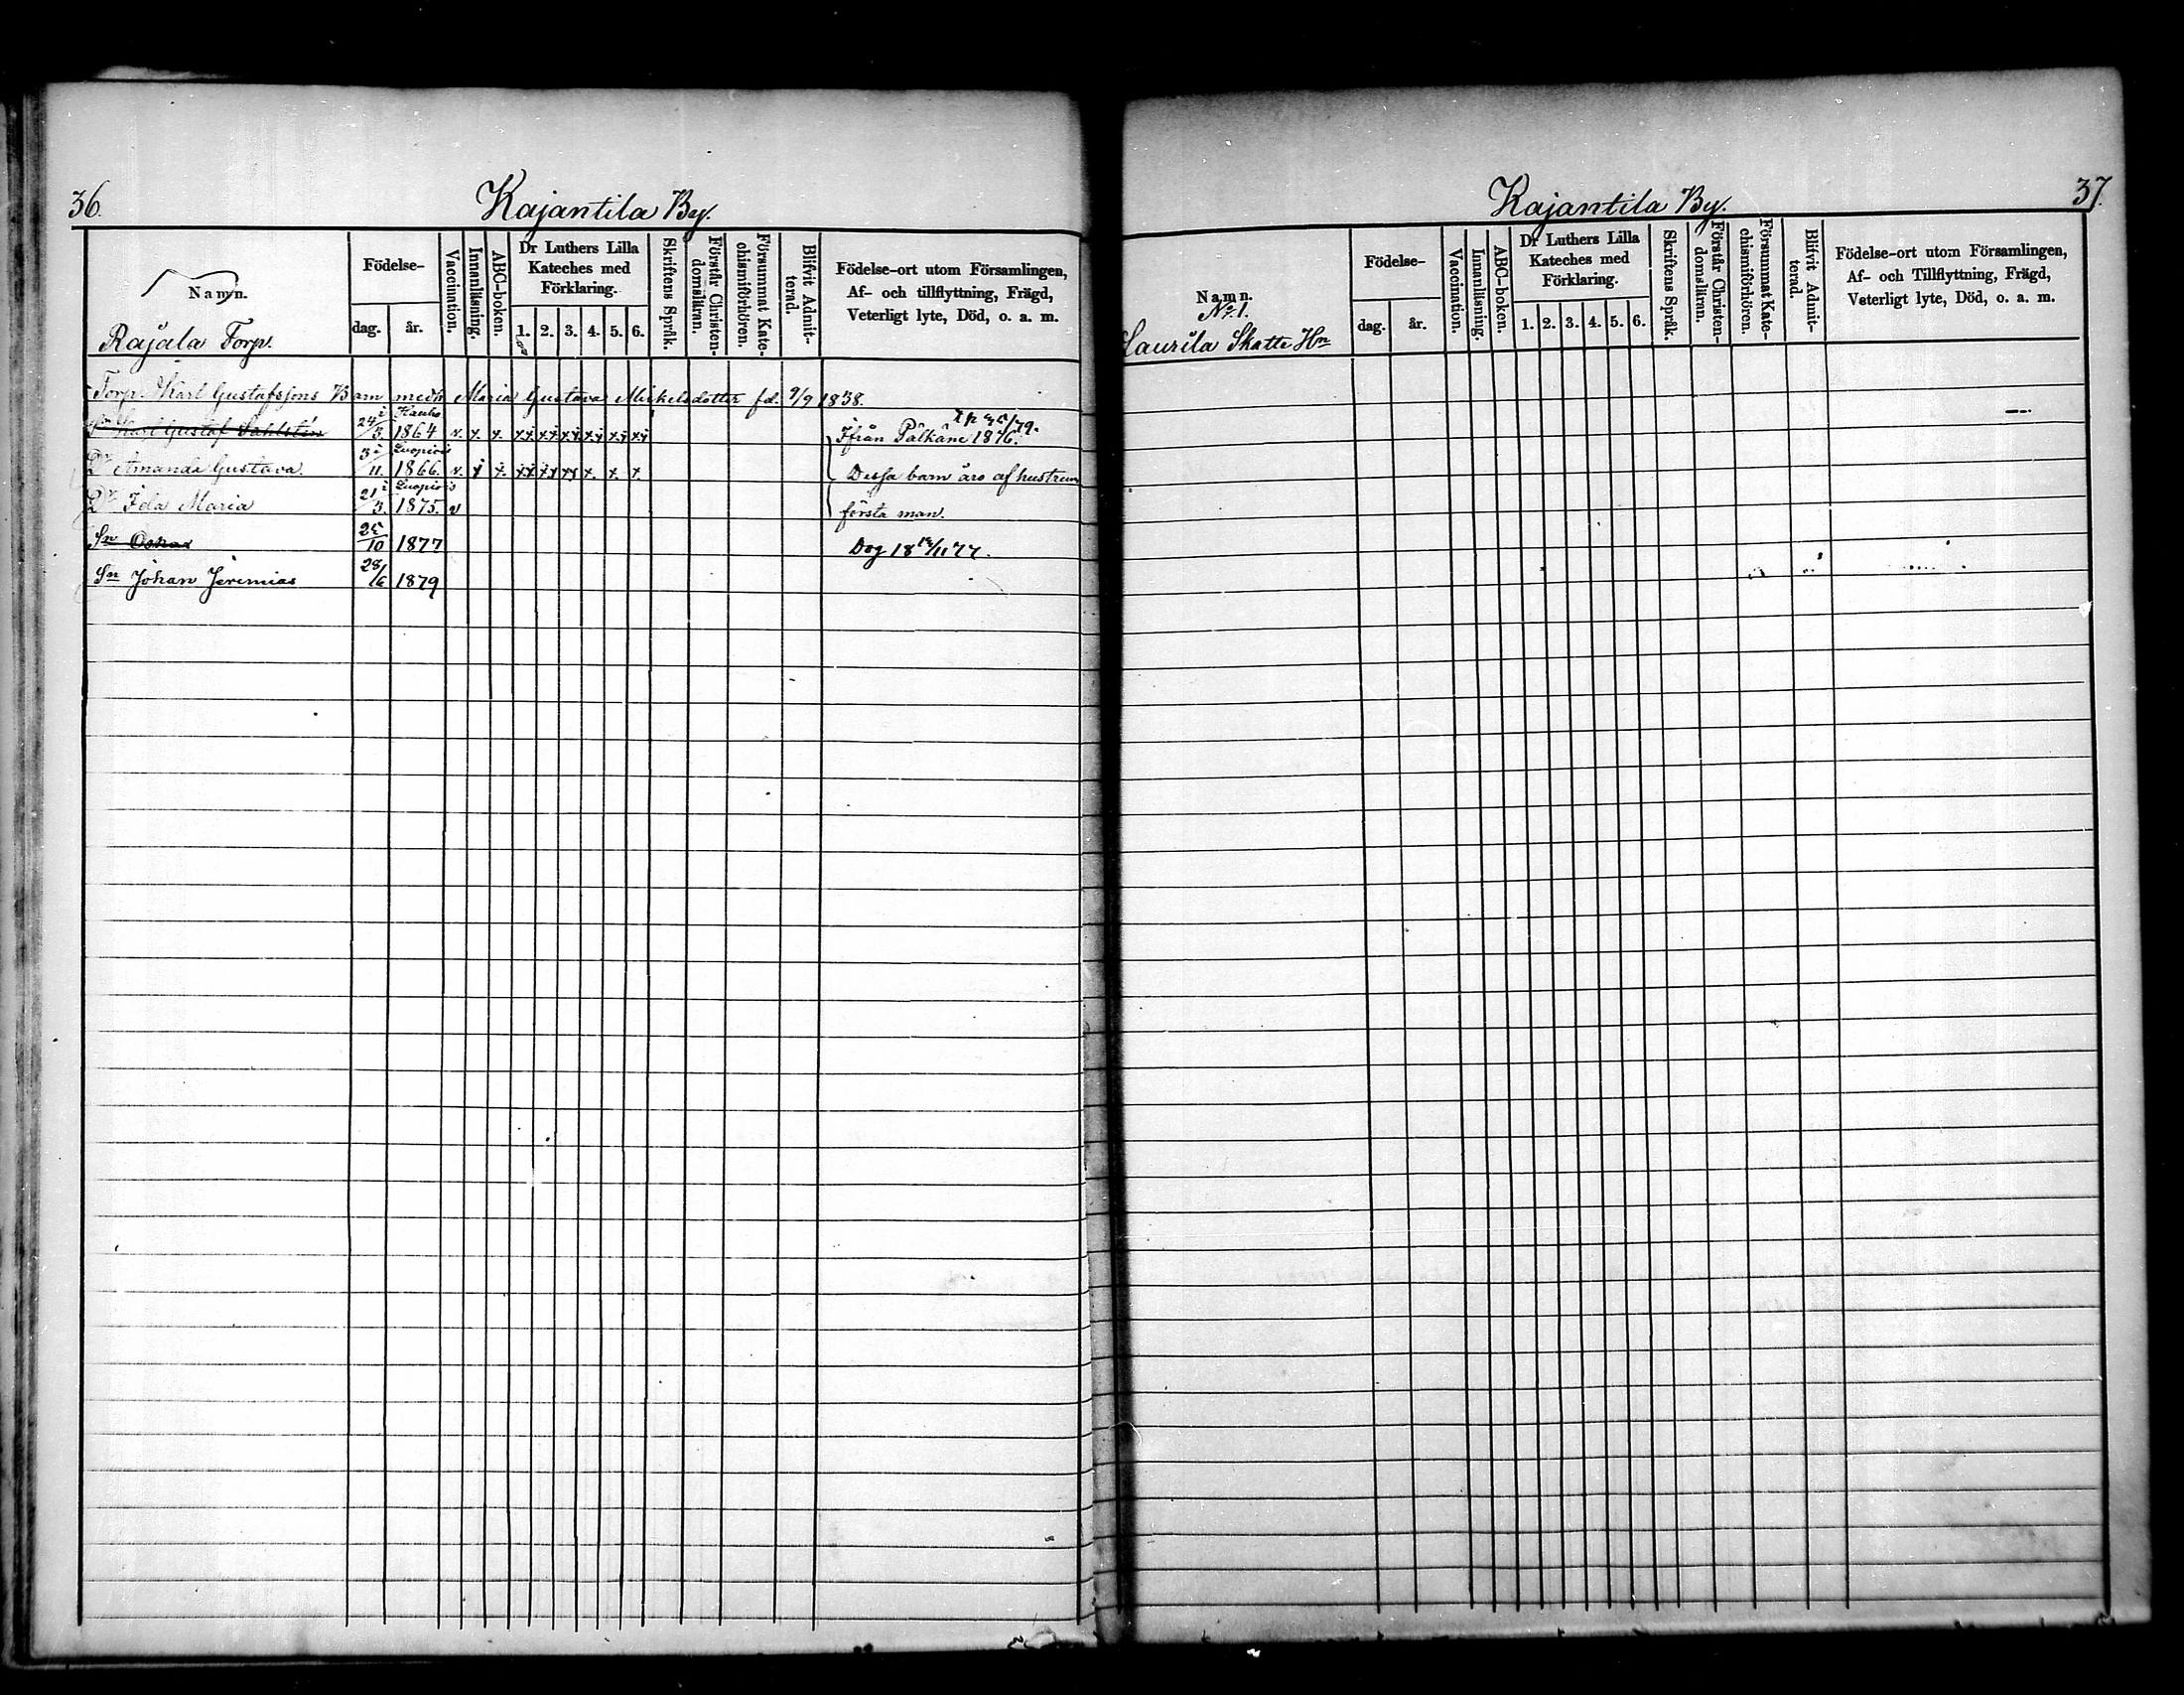 36.
Kajantila By.
Namn.
Födelse-
dag.
år.
Vaccination.
Innanläsning.
ABC-boken.
Dr Luthers Lilla
Kateches med
Förklaring.
1. 2. 3. 4. 5. 6.
Skriftens Språk.
Förstår Christen-
domsläran.
Försummat Kate-
chismiförhören.
Blifvit Admit-
terad.
Födelse-ort utom Församlingen,
Af- och tillflyttning, Frägd,
Veterligt lyte, Död, o. a. m.
Rajala Torp.
Torp. Karl Gustafssons Barn med h Maria Gustava Mickelsdotter fd. 9/9 1838.
Sn Karl Gustaf Dahlstén 24/3 i Hauho 1864 v. x. x. Ifrån Pälkäne 1876.
Dr Amanda Gustava. 3/11. i Luopiois 1866. v. Dessa barn äro af hustruns
Dr Ida Maria 21/3 i Luopiois 1875. v första man.
Sn Oskar 25/10 1877 Dog 18 /11 77.
Sn Johan Jeremias 28/6 1879
37.
Kajantila By.
Namn.
No 1.
Laurila Skatte Hn
Födelse-
dag.
år.
Vaccination.
Innanläsning.
ABC-boken.
Dr Luthers Lilla
Kateches med
Förklaring.
1. 2. 3. 4. 5. 6.
Skriftens Språk.
Förstår Christen-
domsläran.
Försummat Kate-
chismiförhören.
Blifvit Admit-
terad.
Födelse-ort utom Församlingen,
Af- och Tillflyttning, Frägd,
Veterligt lyte, Död, o. a. m.